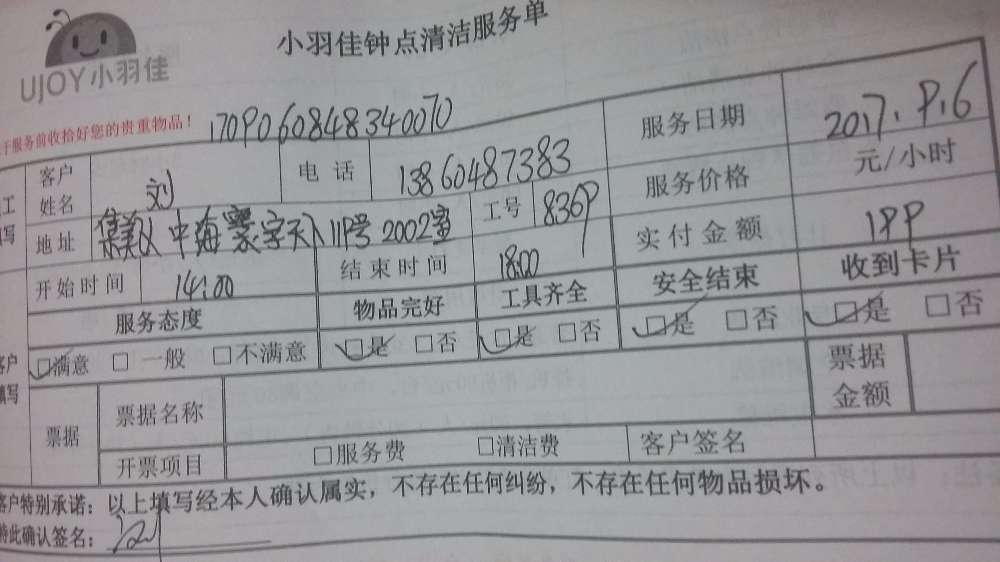 UJOY小羽佳
小羽佳钟点清洁服务单
于服务前收拾好您的贵重物品！
1709060848340070
客户姓名 刘 电话 13860487383 服务日期 2017.9.6
地址 集美 中海寰宇天 119号 2002室 工号 8369 服务价格 元/小时
开始时间 14:00 结束时间 18:00 实付金额 199
服务态度 物品完好 工具齐全 安全结束 收到卡片
□满意 □一般 □不满意 □是 □否 □是 □否 □是 □否 □是 □否
客户填写
票据 票据名称 票据金额
开票项目 □服务费 □清洁费 客户签名
客户特别承诺：以上填写经本人确认属实，不存在任何纠纷，不存在任何物品损坏。
特此确认签名：刘